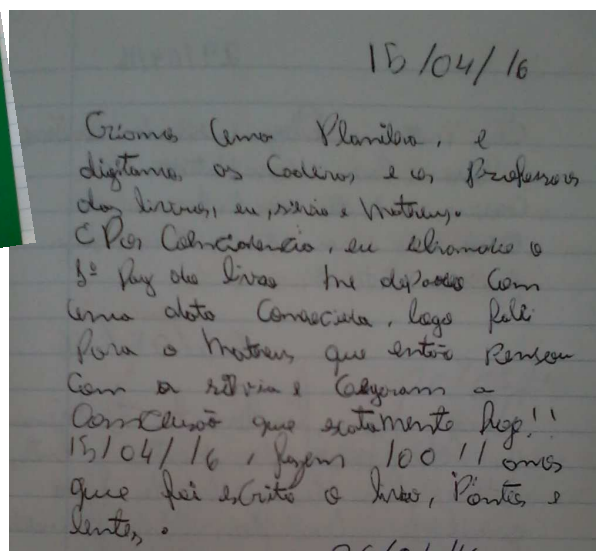 15/04/16
Criamos uma Planilha, e
digitamos os Caderos e os Professores
dos livros, eu, silvia e Matheus.
Por Coincidencia, eu
1º Pag do livro me deparo Com
uma data Conhecida, logo falei
Para o Matheus que então Pensou
Com a silvia e Chegaram a
Conclusão que exatamente hoje!!
15/04/16, fazem 100!! anos
que foi escrito o livro, Pontes e
lentes.